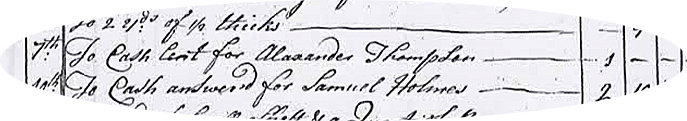 to 2 yds of 1/2 thicks
7th To Cash lent for Alaxander Thompson 1 - -
To Cash answerd for Samuel Holmes 2